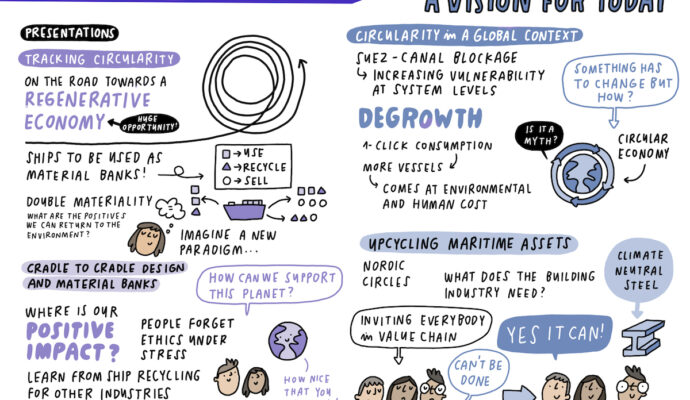 A VISION FOR TODAY
PRESENTATIONS
TRACKING CIRCULARITY
ON THE ROAD TOWARDS A
REGENERATIVE
ECONOMY
HUGE
OPPORTUNITY!
SHIPS TO BE USED AS
MATERIAL BANKS!
→ USE
→ RECYCLE
→ SELL
DOUBLE MATERIALITY
WHAT ARE THE POSITIVES
WE CAN RETURN TO THE
ENVIRONMENT?
IMAGINE A NEW
PARADIGM...
CRADLE TO CRADLE DESIGN
AND MATERIAL BANKS
HOW CAN WE SUPPORT
THIS PLANET?
WHERE IS OUR
POSITIVE
IMPACT?
PEOPLE FORGET
ETHICS UNDER
STRESS
LEARN FROM SHIP RECYCLING
FOR OTHER INDUSTRIES
HOW NICE
THAT YOU
CIRCULARITY in A GLOBAL CONTEXT
SUEZ-CANAL BLOCKAGE
INCREASING VULNERABILITY
AT SYSTEM LEVELS
SOMETHING HAS
TO CHANGE BUT
HOW?
DEGROWTH
1-CLICK CONSUMPTION
MORE VESSELS
COMES AT ENVIRONMENTAL
AND HUMAN COST
IS IT A
MYTH?
CIRCULAR
ECONOMY
UPCYCLING MARITIME ASSETS
NORDIC
CIRCLES
WHAT DOES THE BUILDING
INDUSTRY NEED?
CLIMATE
NEUTRAL
STEEL
INVITING EVERYBODY
in VALUE CHAIN
CAN'T BE
DONE
YES IT CAN!